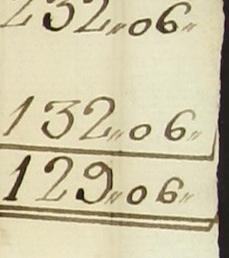 232,,06,,
132,,06,,
129,,06,,